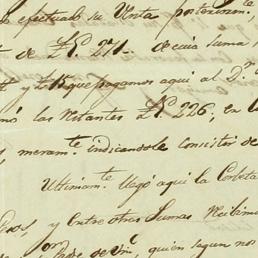 efectuado su Venta posteriorm.te
te de £E. 271.. de cuia suma
y £15 que pagamos aqui al D.n
mó las restantes £E. 226, en la
meram.te indicandole consistir de
Ultimam.te llegó aqui la Corbeta
y entre otras sumas recibim
Padre de Vm.d, quién segun nos